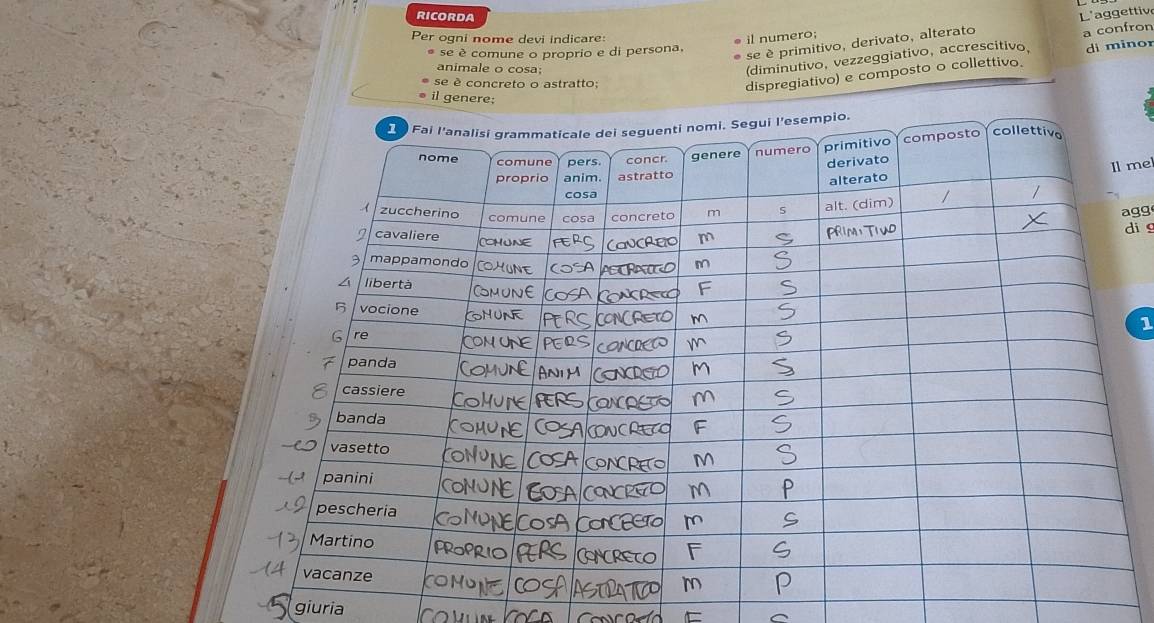 RICORDA
Per ogni nome devi indicare:
• se è comune o proprio e di persona,
animale o cosa;
• se è concreto o astratto;
• il genere;
• il numero;
• se è primitivo, derivato, alterato
(diminutivo, vezzeggiativo, accrescitivo,
dispregiativo) e composto o collettivo.
L'aggettiv
a confron
di minor
1 Fai l'analisi grammaticale dei seguenti nomi. Segui l'esempio.
nome comune proprio pers. anim. cosa concr. astratto genere numero primitivo derivato alterato composto collettivo
1 zuccherino comune cosa concreto m s alt. (dim) / /
2 cavaliere COMUNE PERS CONCRETO m S PRIMITIVO X
3 mappamondo COMUNE COSA m S
4 libertà COMUNE COSA CONCRETO F S
5 vocione COMUNE PERS CONCRETO m S
6 re COMUNE PERS CONCRETO m S
7 panda COMUNE ANIM CONCRETO m S
8 cassiere COMUNE PERS CONCRETO m S
9 banda COMUNE COSA CONCRETO F S
10 vasetto COMUNE COSA CONCRETO m S
11 panini COMUNE COSA CONCRETO m P
12 pescheria COMUNE COSA m S
13 Martino PROPRIO PERS CONCRETO F S
14 vacanze COMUNE COSA ASTRATTO m P
15 giuria COMUNE COSA CONCRETO F S
Il mel
agg
di g
1